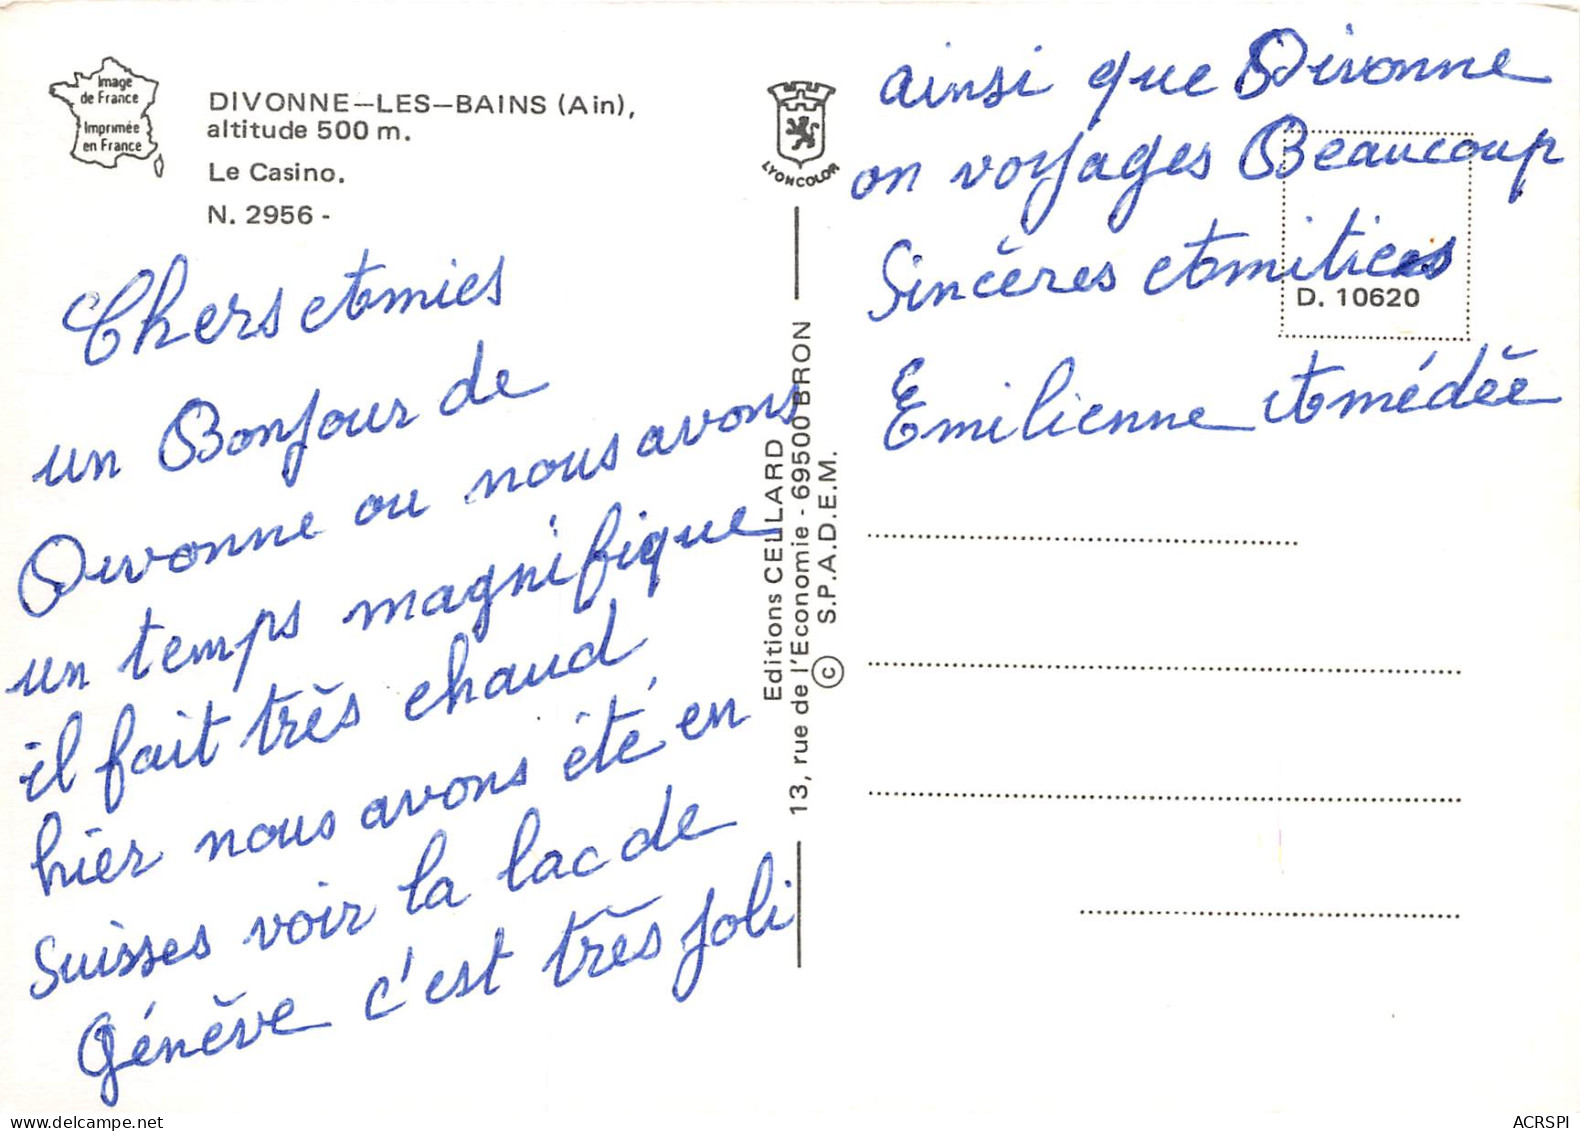 Image
de France
Imprimée
en France
DIVONNE-LES-BAINS (Ain),
altitude 500 m.
Le Casino.
N. 2956 -
Chers Amies
un Bonjour de
Divonne ou nous avons
un temps magnifique
il fait très chaud
hier nous avons été en
Suisses voir la lac de
Génève c'est très joli
LYONCOLOR
Editions CELLARD
13, rue de l'Economie - 69500 BRON
© S.P.A.D.E.M.
ainsi que Divonne
on voyages Beaucoup
Sincères Amitices
D. 10620
Emilienne Amédée
ACRSPI